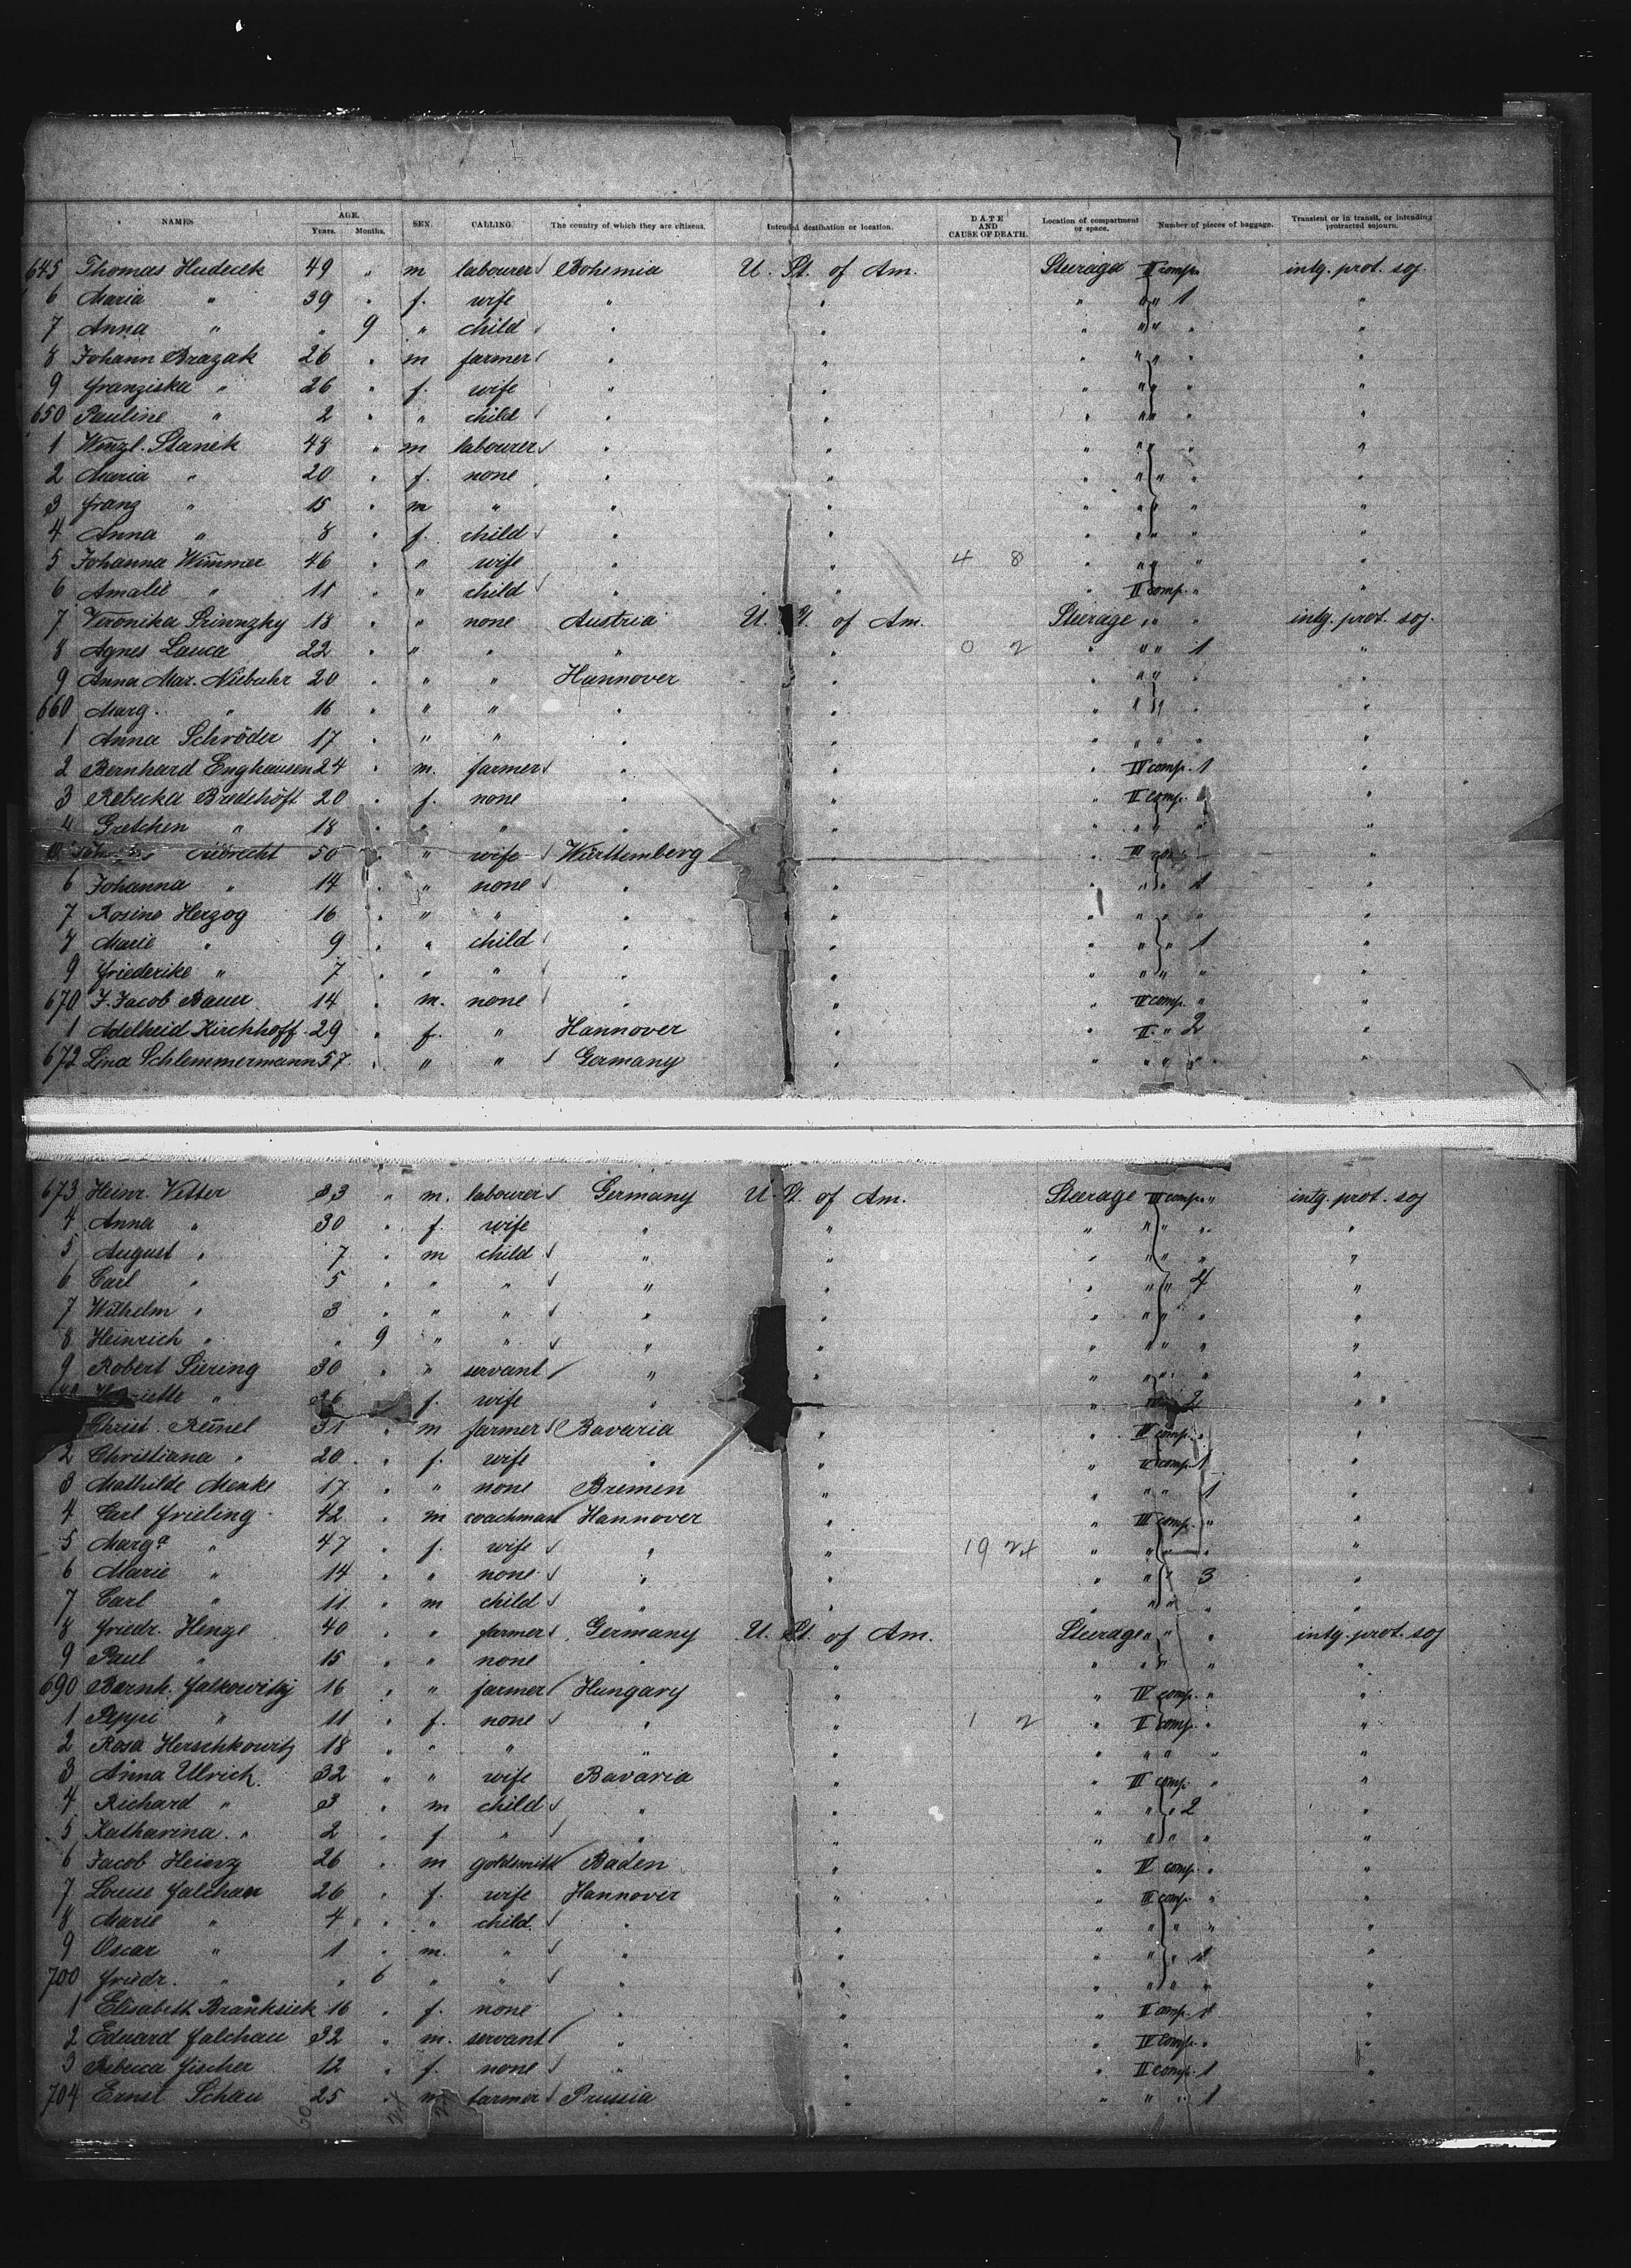 NAMES AGE. Years. Months. SEX. CALLING. The country of which they are citizens. Intended destination or location. DATE AND CAUSE OF DEATH. Location of compartment or space. Number of pieces of baggage. Transient or in transit, or intending protracted sojourn.
645 Thomas Hudecek 49 " m labourer Bohemia U. St. of Am. Steerage II comp. intg. prot. soj.
6 Maria " 39 " f. wife " " " " " 1 "
7 Anna " " 9 " child " " " " " " "
8 Johann Brazak 26 " m farmer " " " " " " "
9 Franziska " 26 " f. wife " " " " " " "
650 Pauline " 2 " " child " " " " " " "
1 Wenzl. Stanek 48 " m labourer " " " " " " "
2 Maria " 20 " f. none " " " " " " "
3 Franz " 15 " m " " " " " " " "
4 Anna " 8 " f. child " " " " " " "
5 Johanna Wimmer 46 " " wife " " 4 8 " " " " "
6 Amalie " 11 " " child " " " II comp. " "
7 Veronika 18 " " none Austria U. St. of Am. Steerage " " " intg. prot. soj.
8 Agnes Lauca 22 " " " " " 0 2 " " " 1 "
9 Anna Mar. Niebuhr 20 " " " Hannover " " " " " "
660 Marg. " 16 " " " " " " " " " "
1 Anna Schröder 17 " " " " " " " " " "
2 Bernhard Enghausen 24 " m. farmer " " " IV comp. 1 "
3 Rebecka Bredehöft 20 " f. none " " " II comp. " "
4 Gretchen " 18 " " " " " " " " " "
Albrecht 50 " " wife Württemberg " " III "
6 Johanna " 14 " " none " " " " " 1 "
7 Rosine Herzog 16 " " " " " " " " " "
8 Marie " 9 " " child " " " " " 1 "
9 Friederike " 7 " " " " " " " " " "
670 J. Jacob Bauer 14 " m. none " " " IV comp. " "
1 Adelheid Kirchhoff 29 " f. " Hannover " " II. " 2 "
672 Lina Schlemmermann 57 " " " Germany " " " " " "
673 Heinr. Vetter 33 " m. labourer Germany U. St. of Am. Steerage III comp. " intg. prot. soj
4 Anna " 30 " f. wife " " " " " " "
5 August " 7 " m child " " " " " " "
6 Carl " 5 " " " " " " " " 4 "
7 Wilhelm " 3 " " " " " " " " " "
8 Heinrich " " 9 " " " " " " " " "
9 Robert Siering 30 " " servant " " " " " " "
Henriette " 26 f. wife " " " 2 "
Christ. Reimel 31 " m farmer Bavaria " " IV comp. " "
2 Christiana " 20 " f. wife " " " II comp. 1 "
3 Mathilde Menke 17 " " none Bremen " " " " 1 "
4 Carl Frieling 42 " m coachman Hannover " " III comp. " "
5 Marga " 47 " f. wife " " 19 24 " " " " "
6 Marie " 14 " " none " " " " " 3 "
7 Carl " 11 " m child " " " " " " "
8 Friedr. Henze 40 " " farmer Germany U. St. of Am. Steerage " " " intg. prot. soj
9 Paul " 15 " " none " " " " " " "
690 Bernh. Falkowitz 16 " " farmer Hungary " " IV comp. " "
1 Peppi " 11 " f. none " " 1 2 " II comp. " "
2 Rosa Herschkowitz 18 " " " " " " " " " "
3 Anna Ulrich 32 " " wife Bavaria " " III comp. " "
4 Richard " 3 " m child " " " " " 2 "
5 Katharina " 2 " f " " " " " " " "
6 Jacob Heinz 26 " m goldsmith Baden " " IV comp. " "
7 Louise Falchau 26 " f. wife Hannover " " III comp. " "
8 Marie " 4 " " child " " " " " " "
9 Oscar " 1 " m. " " " " " " 1 "
700 Friedr. " " 6 " " " " " " " " "
1 Elisabeth Branksiek 16 " f. none " " " II comp. 1 "
2 Eduard Falchau 32 " m. servant " " " IV comp. " "
3 Rebecca Fischer 12 " f. none " " " II comp. 1 "
704 Ernst Schau 25 " m farmer Prussia " " " " 1 "